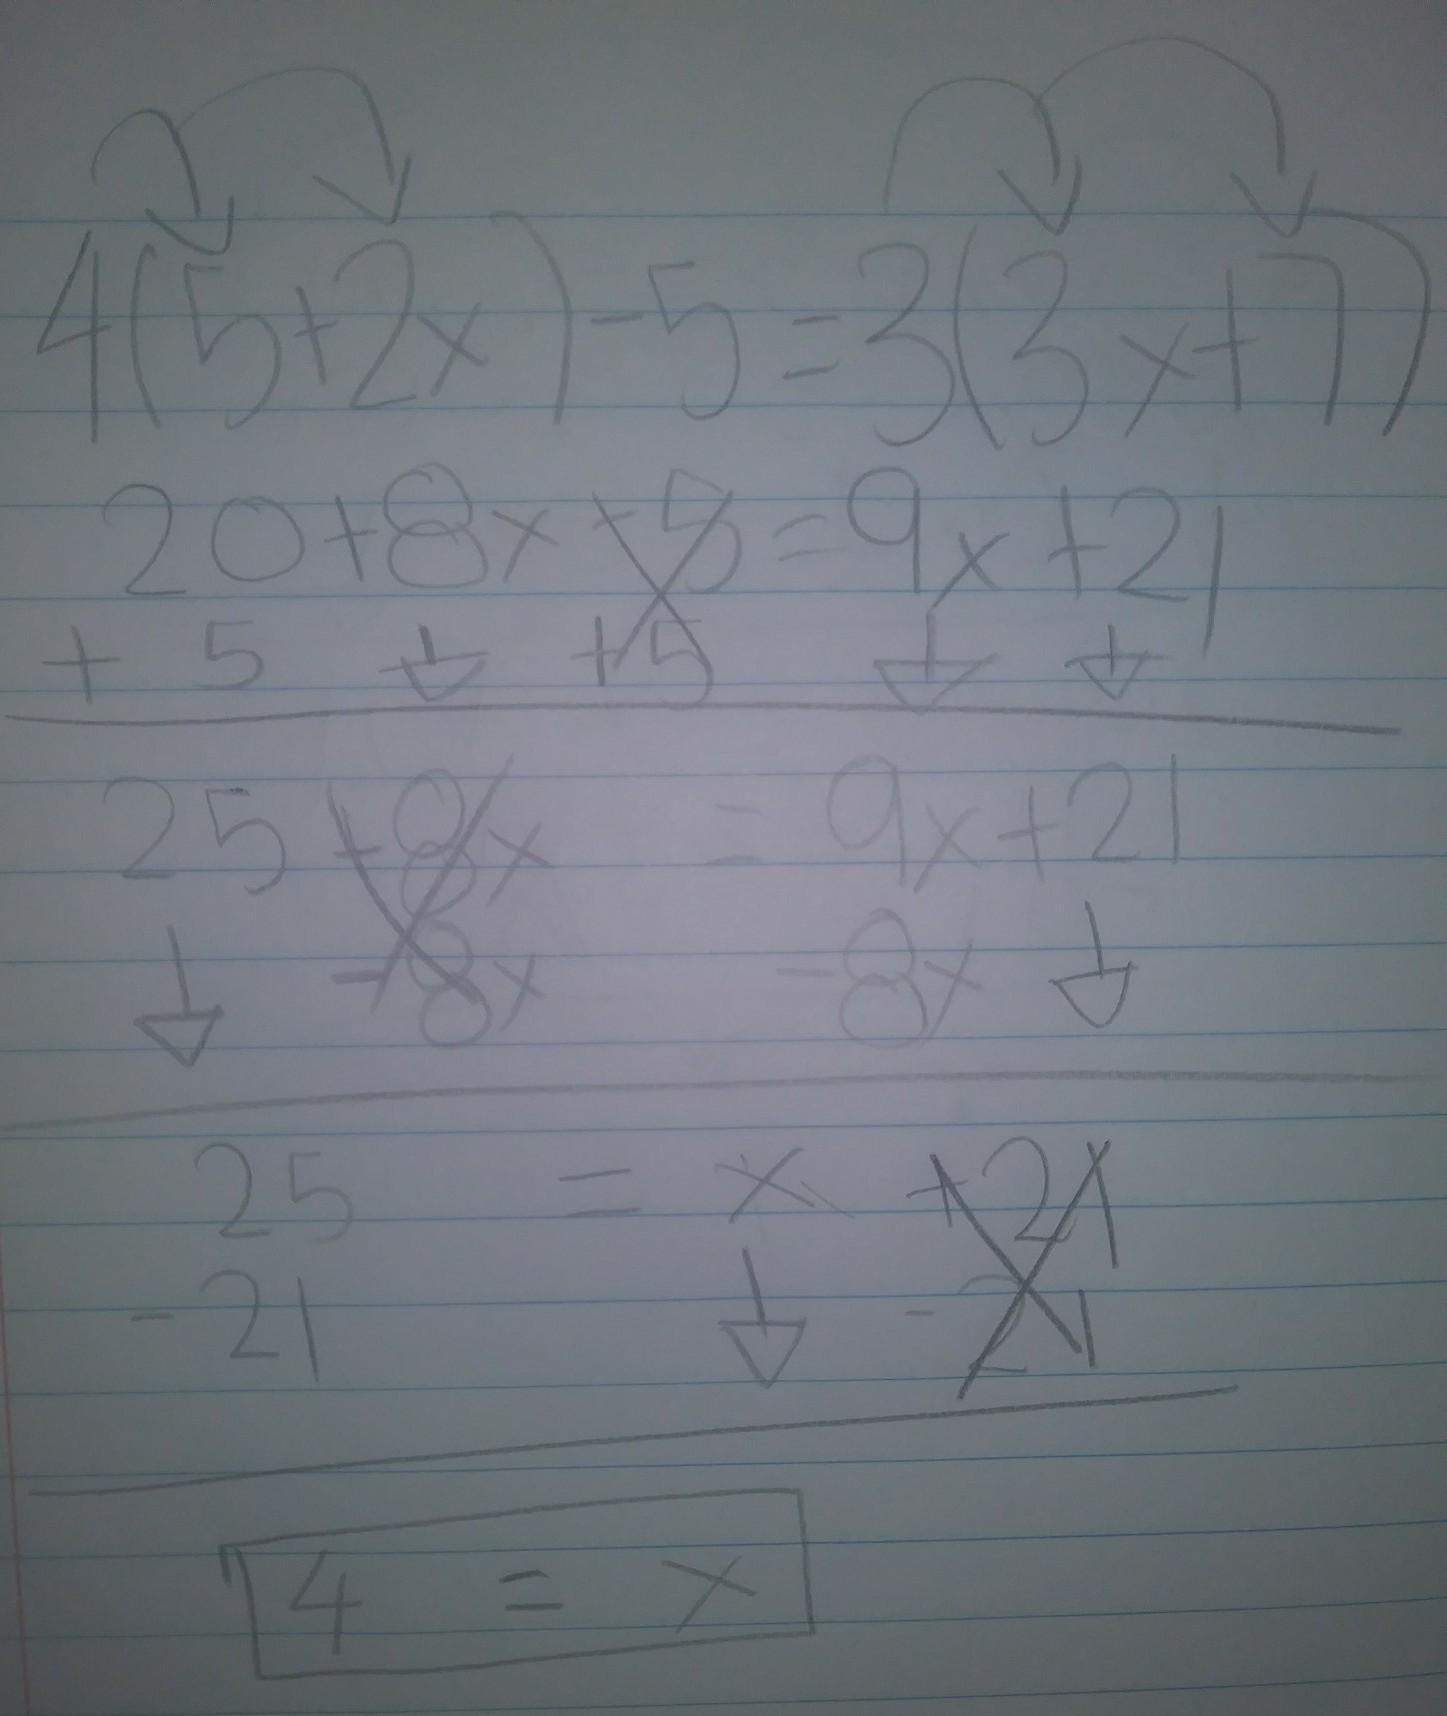 4(5+2x)-5=3(3x+7)
20+8x-5=9x+21
+ 5 +5
25+8x = 9x+21
-8x -8x
25 = x +21
-21 -21
4 = x